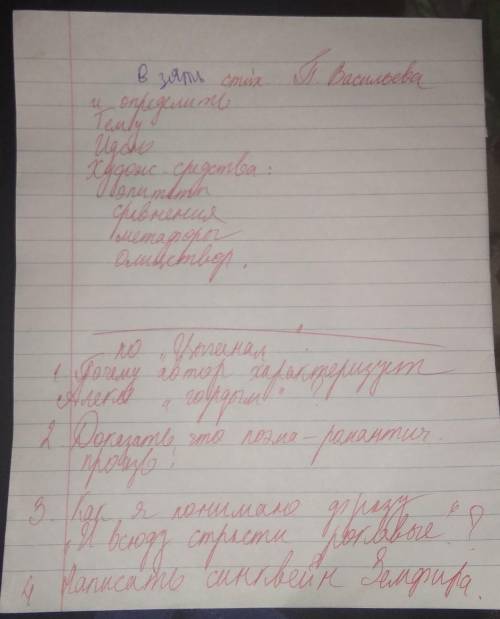 Взять стих П. Васильева
и определить
Тему
Идею
Худож. средства:
эпитеты
сравнения
метафоры
олицетвор.
по "Цыганам"
1. Почему автор характеризует
Алеко "гордым"?
2. Доказать что поэма - романтич.
произв!
3. Как я понимаю фразу
"И всюду страсти роковые"?
4 Написать синквейн Земфира.